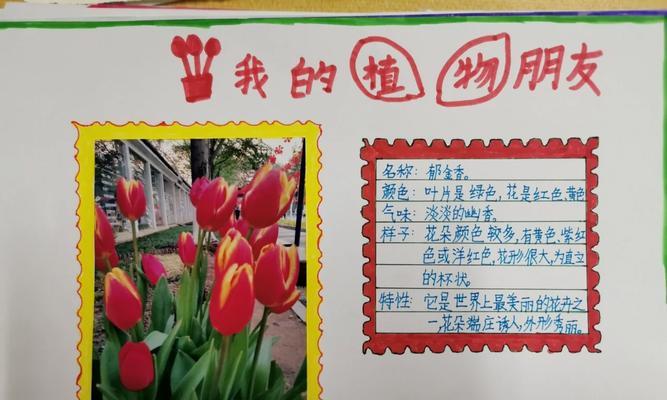 我的植物朋友
名称：郁金香。
颜色：叶片是绿色，花是红色、黄色
气味：淡淡的幽香。
样子：花朵颜色较多，有黄色、紫红
色或洋红色，花形很大，为直立
的杯状。
特性：它是世界上最美丽的花卉之
一，花朵端庄诱人，外形秀丽。